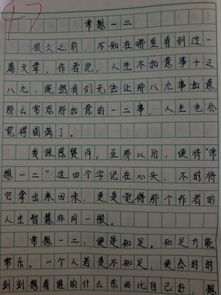 47
常想一二
很久之前，不知在哪里看到过一
篇文章，作者说，人生不如意事十之
八九，既然我们无法让那八九事如意，
那么常想那如意的一二事，人生也会
觉得圆满了。
我很感赞同，至那以后，便将"常
想一二"这四个字记在心头，不时将
它拿出来回味，更是觉得那个作者的
人生智慧非同一般。
常想一二，便是知足。知足方能
常乐，一个人若是不知足，便会时时
刻刻想着谁的什么东西比自己好，